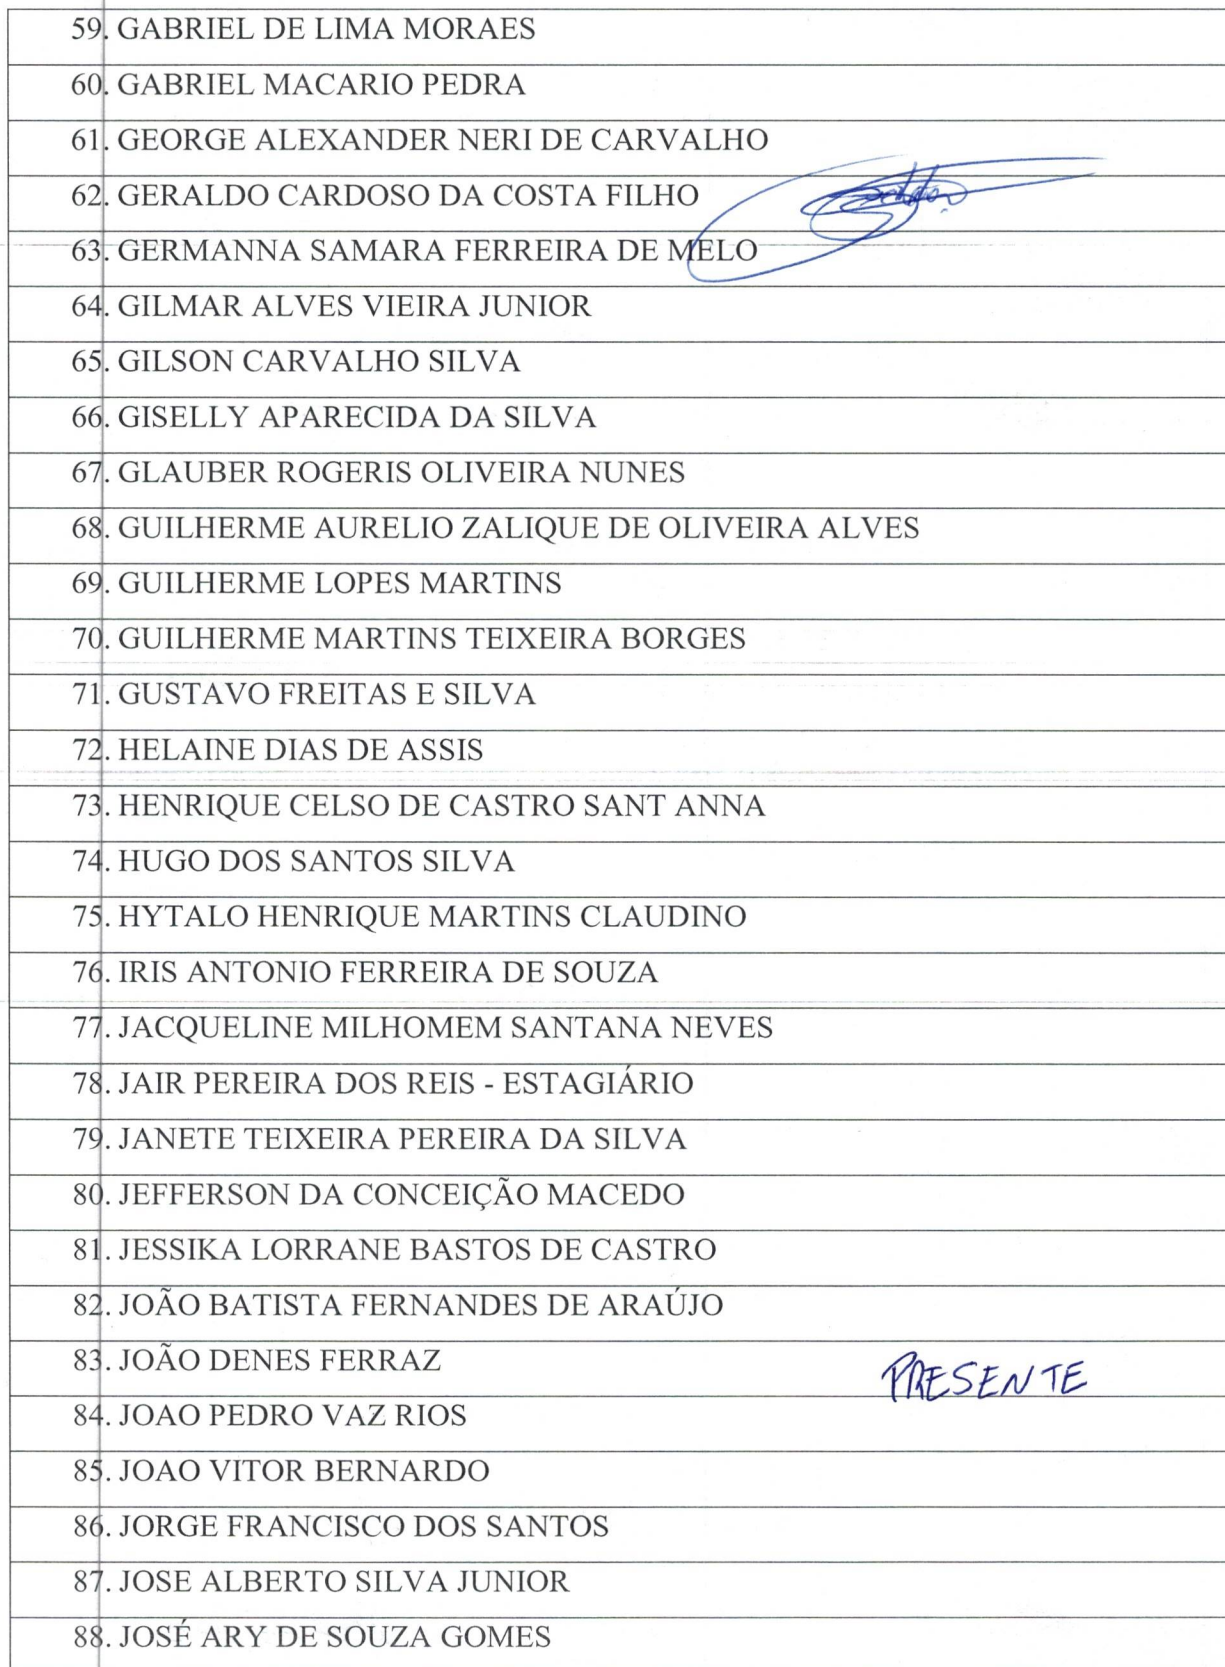 59. GABRIEL DE LIMA MORAES
60. GABRIEL MACARIO PEDRA
61. GEORGE ALEXANDER NERI DE CARVALHO
62. GERALDO CARDOSO DA COSTA FILHO
63. GERMANNA SAMARA FERREIRA DE MELO
64. GILMAR ALVES VIEIRA JUNIOR
65. GILSON CARVALHO SILVA
66. GISELLY APARECIDA DA SILVA
67. GLAUBER ROGERIS OLIVEIRA NUNES
68. GUILHERME AURELIO ZALIQUE DE OLIVEIRA ALVES
69. GUILHERME LOPES MARTINS
70. GUILHERME MARTINS TEIXEIRA BORGES
71. GUSTAVO FREITAS E SILVA
72. HELAINE DIAS DE ASSIS
73. HENRIQUE CELSO DE CASTRO SANT ANNA
74. HUGO DOS SANTOS SILVA
75. HYTALO HENRIQUE MARTINS CLAUDINO
76. IRIS ANTONIO FERREIRA DE SOUZA
77. JACQUELINE MILHOMEM SANTANA NEVES
78. JAIR PEREIRA DOS REIS - ESTAGIÁRIO
79. JANETE TEIXEIRA PEREIRA DA SILVA
80. JEFFERSON DA CONCEIÇÃO MACEDO
81. JESSIKA LORRANE BASTOS DE CASTRO
82. JOÃO BATISTA FERNANDES DE ARAÚJO
83. JOÃO DENES FERRAZ PRESENTE
84. JOAO PEDRO VAZ RIOS
85. JOAO VITOR BERNARDO
86. JORGE FRANCISCO DOS SANTOS
87. JOSE ALBERTO SILVA JUNIOR
88. JOSÉ ARY DE SOUZA GOMES